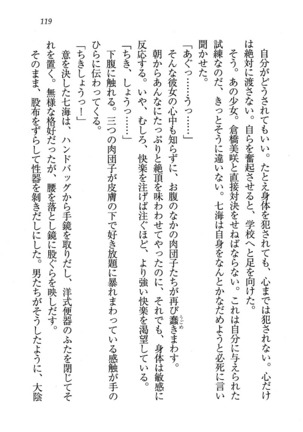 119
自分がどうなってもいい。たとえ身体を犯されても、心までは犯されない。心だけ
は絶対に渡さない。自らを奮起させると、学校へと足を向けた。
そう。あの少女。倉橋美咲と直接対決をせねばならない。これは自分に与えられた
試練なのだ、きっとそうに違いない。七海は自身をなんとかなだめようと必死に言い
聞かせた。
「あぐっ……うっ……」
そんな彼女の心中も知らずに、お腹のなかの肉団子たちが再び蠢きまわす。
朝からあんなにたっぷりと絶頂を味わわせてやったのに、それでも、身体は敏感に
反応する。いや、むしろ、快楽を注げば注ぐほど、より強い快楽を渇望している。
「ちき、しょうっ……」
下腹に触れる。三つの肉団子が皮膚の下で好き放題に暴れまわっている感触が手の
ひらに伝わってくる。
「ちきしょうっ！」
意を決した七海は、ハンドバッグから手鏡を取りだし、洋式便器のふたを閉じてそ
れを置く。無様な格好だったが、腰を落とし鏡に股ぐらを映しだす。
そのまま、股布をずらして性器を剥きだしにした。男たちがそうしたように、大陰